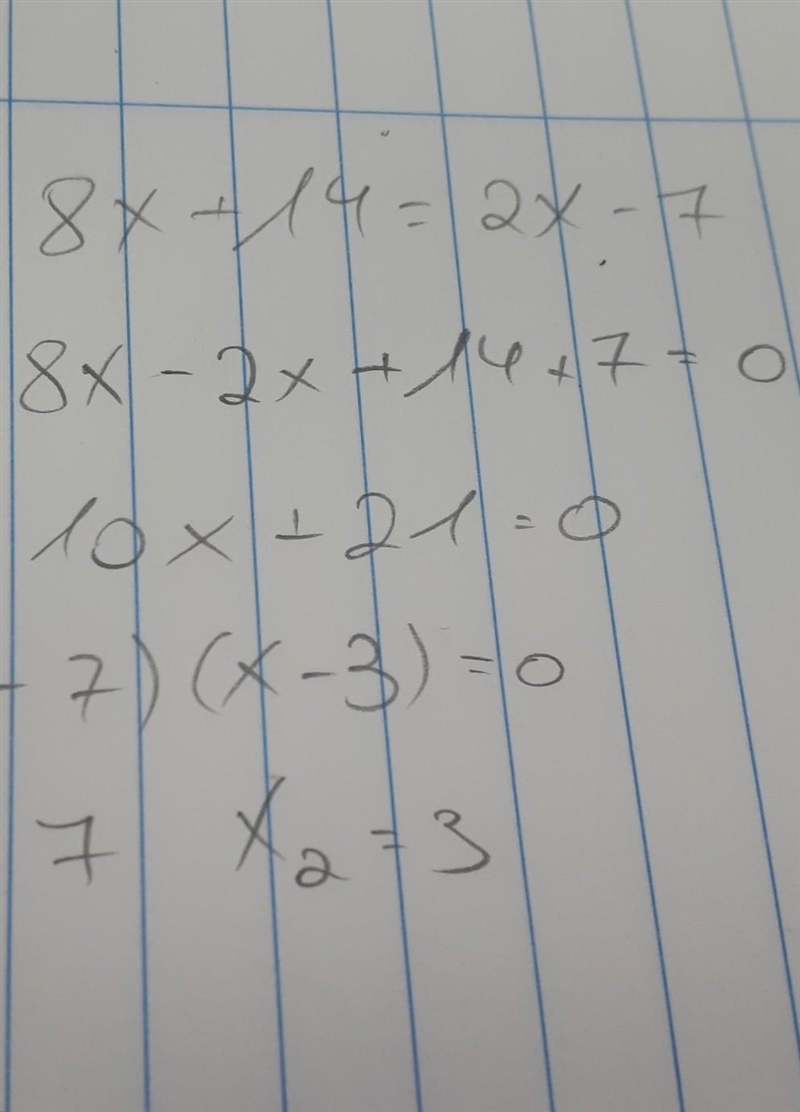 8x + 14 = 2x - 7
8x - 2x + 14 + 7 = 0
10x + 21 = 0
- 7) (x - 3) = 0
7 x₂ = 3